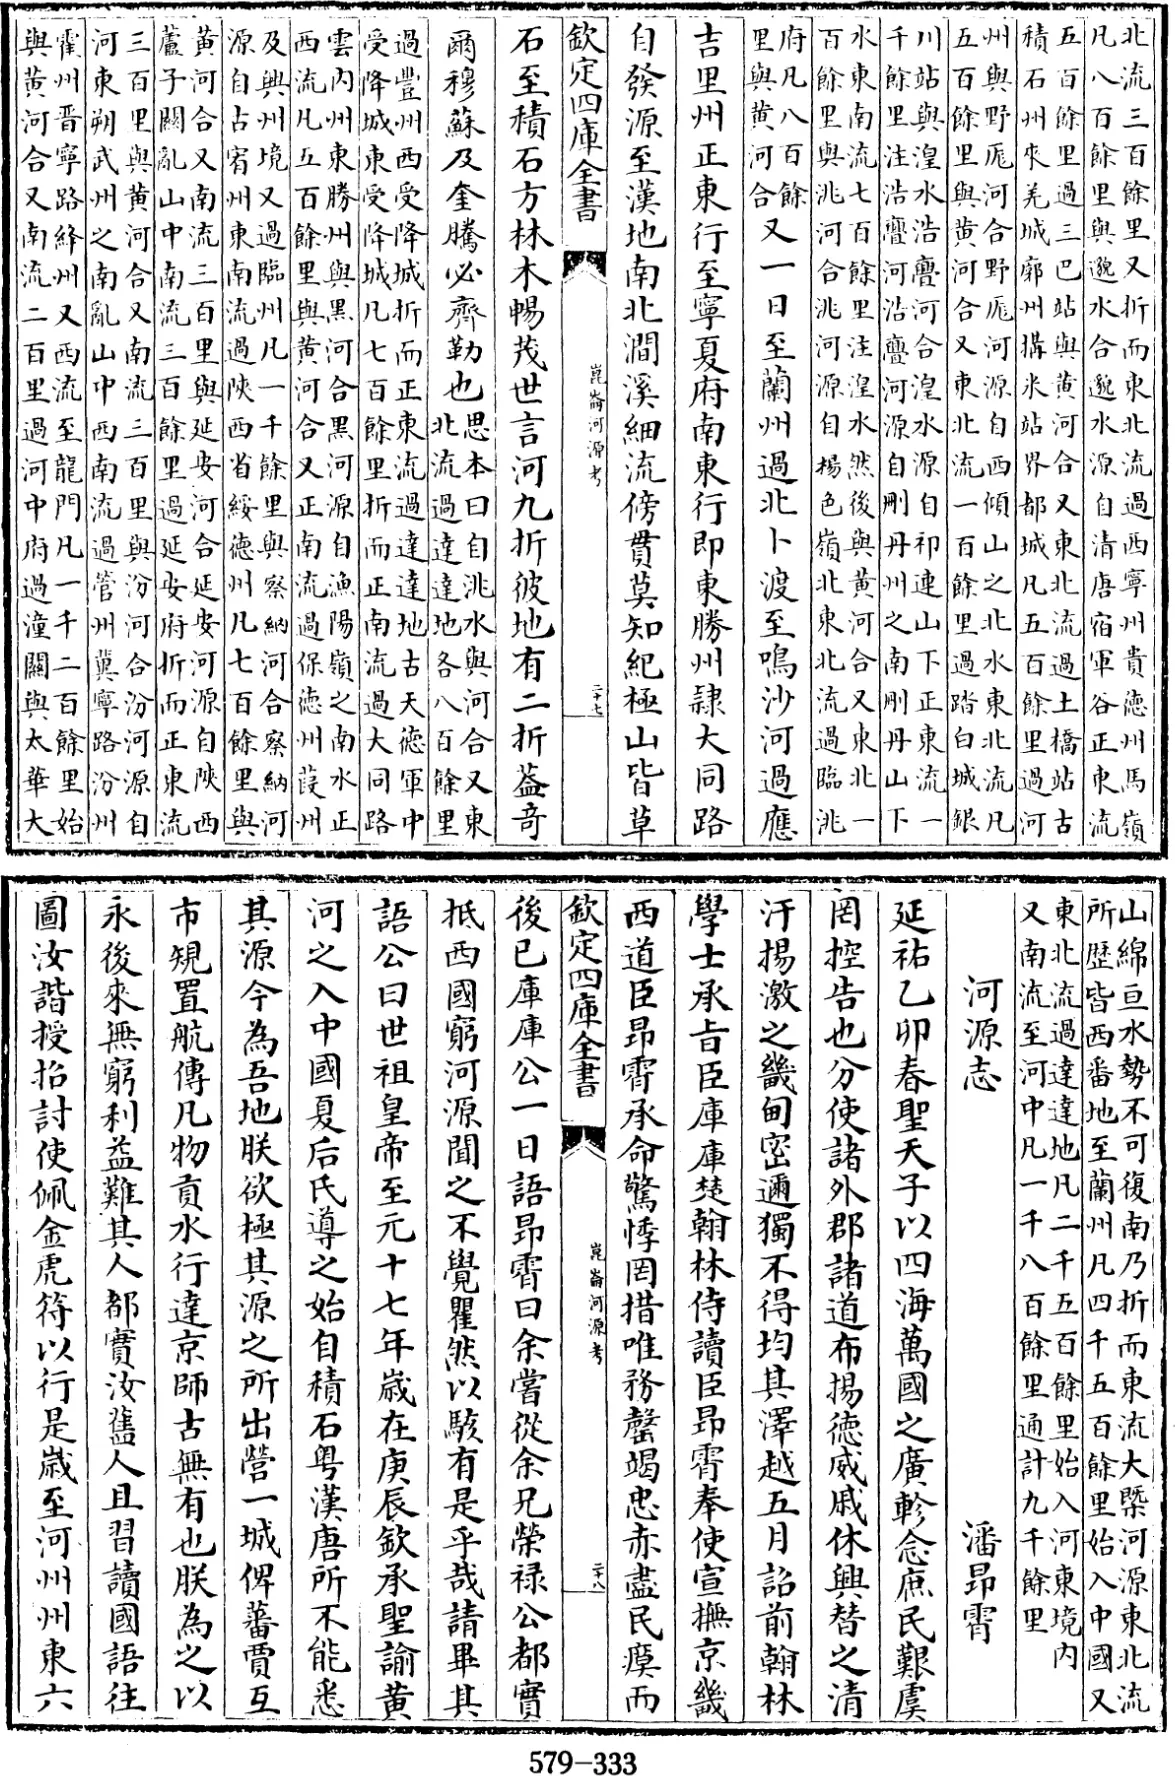 北流三百餘里又折而東北流過西寧州貴德州馬嶺
凡八百餘里與邈水合邈水源自清唐宿軍谷正東流
五百餘里過三巴站與黃河合又東北流過土橋站古
積石州來羌城廓州搆米站界都城凡五百餘里過河
州與野厖河合野厖河源自西傾山之北水東北流凡
五百餘里與黃河合又東北流一百餘里過踏白城銀
川站與湟水浩亹河合湟水源自祁連山下正東流一
千餘里注浩亹河浩亹河源自刪丹州之南刪丹山下
水東南流七百餘里注湟水然後與黃河合又東北一
百餘里與洮河合洮河源自楊色嶺北東北流過臨洮
府凡八百餘
里與黃河合
又一日至蘭州過北卜渡至鳴沙河過應
吉里州正東行至寧夏府南東行即東勝州隸大同路
自發源至漢地南北澗溪細流傍貫莫知紀極山皆草
欽定四庫全書
崑崙河源考
二十七
石至積石方林木暢茂世言河九折彼地有二折葢奇
爾穆蘇及奎騰必齊勒也
思本曰自洮水與河合又東
北流過達達地各八百餘里
過豐州西受降城折而正東流過達達地古天德軍中
受降城東受降城凡七百餘里折而正南流過大同路
雲內州東勝州與黑河合黑河源自漁陽嶺之南水正
西流凡五百餘里與黃河合又正南流過保德州葭州
及興州境又過臨州凡一千餘里與察納河合察納河
源自古宥州東南流過陝西省綏德州凡七百餘里與
黃河合又南流三百里與延安河合延安河源自陝西
蘆子關亂山中南流三百餘里過延安府折而正東流
三百里與黃河合又南流三百里與汾河合汾河源自
河東朔武州之南亂山中西南流過管州冀寧路汾州
霍州晉寧路絳州又西流至龍門凡一千二百餘里始
與黃河合又南流二百里過河中府過潼關與太華大
山綿亘水勢不可復南乃折而東流大槩河源東北流
所歷皆西番地至蘭州凡四千五百餘里始入中國又
東北流過達達地凡二千五百餘里始入河東境內
又南流至河中凡一千八百餘里通計九千餘里
河源志 潘昂霄
延祐乙卯春聖天子以四海萬國之廣軫念庶民艱虞
罔控告也分使諸外郡諸道布揚德威戚休興替之清
汙揚激之畿甸密邇獨不得均其澤越五月詔前翰林
學士承旨臣庫庫楚翰林侍讀臣昂霄奉使宣撫京畿
西道臣昂霄承命驚悸罔措唯務罄竭忠赤盡民瘼而
欽定四庫全書
崑崙河源考
二十八
後已庫庫公一日語昂霄曰余嘗從余兄榮祿公都實
抵西國窮河源聞之不覺瞿然以駭有是乎哉請畢其
語公曰世祖皇帝至元十七年歲在庚辰欽承聖諭黃
河之入中國夏后氏導之始自積石粤漢唐所不能悉
其源今為吾地朕欲極其源之所出營一城俾蕃賈互
市規置航傳凡物貢水行達京師古無有也朕為之以
永後來無窮利益難其人都實汝舊人且習讀國語往
圖汝諧授招討使佩金虎符以行是歲至河州州東六
579-333